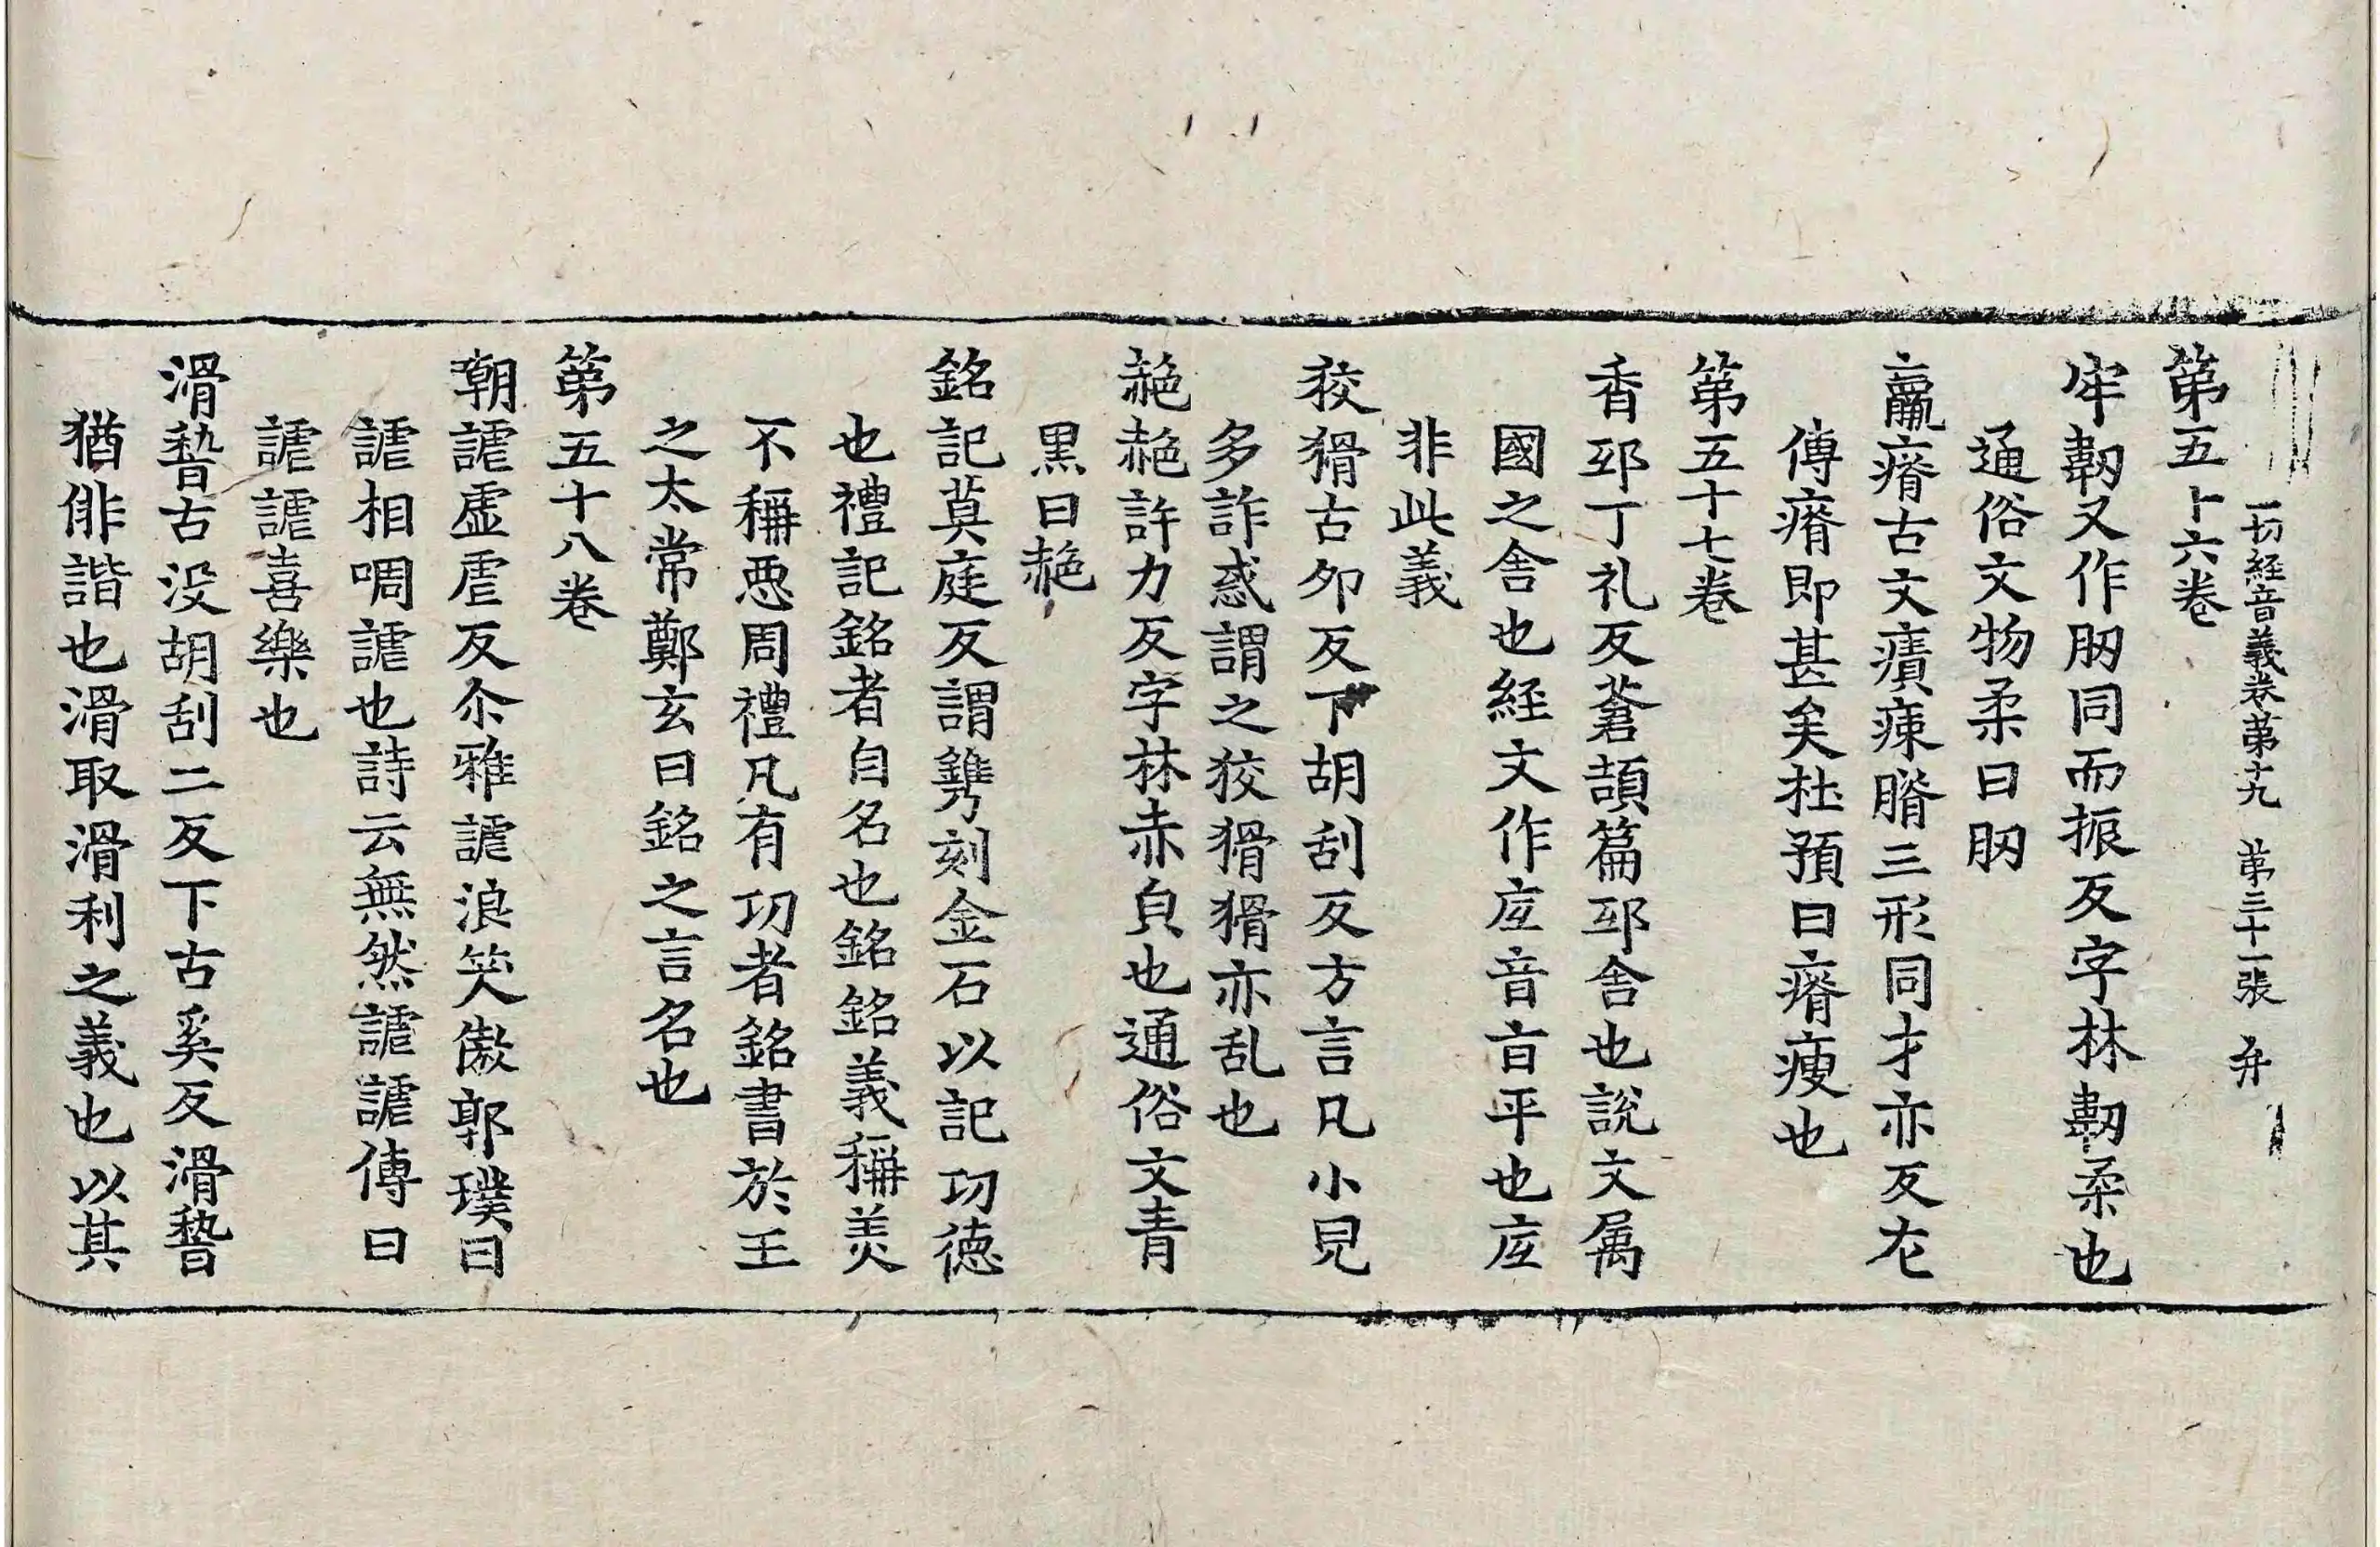 一切経音義卷第十九 第三十一張 弁
第五十六卷
牢韌又作肕同而振反字林韌柔也
通俗文物柔曰肕
羸瘠古文㾊㾊膌三形同才亦反左
傳瘠即甚矣杜預曰瘠瘦也
第五十七卷
香邸丁礼反蒼頡篇邸舍也說文属
國之舍也経文作㡳音旨平也㡳
非此義
狡猾古夘反下胡刮反方言凡小兒
多詐惑謂之狡猾猾亦乱也
赩赩許力反字林赤皃也通俗文青
黒曰赩
銘記莫庭反謂鐫刻金石以記㓛德
也禮記銘者自名也銘銘義稱羙
不稱惡周禮凡有㓛者銘書於王
之太常鄭玄曰銘之言名也
第五十八卷
朝謔虛虐反尒雅謔浪笑傲郭璞曰
謔相啁謔也詩云無然謔謔傳曰
謔謔喜樂也
滑稽古没胡刮二反下古奚反滑稽
猶俳諧也滑取滑利之義也以其